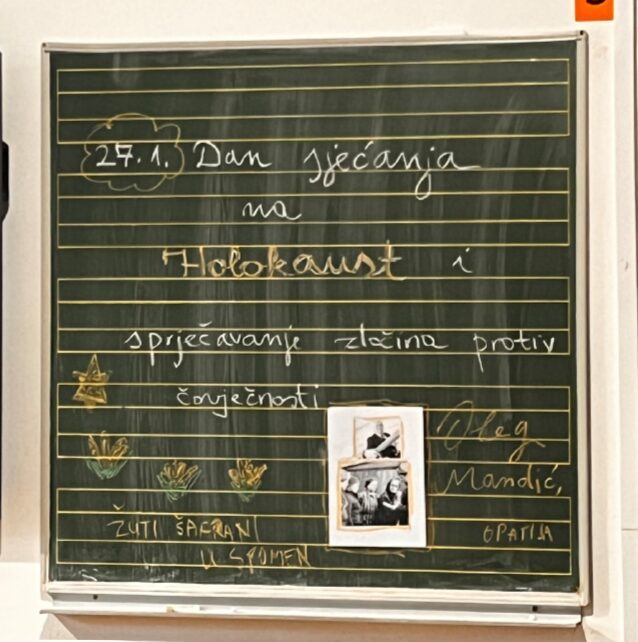 27.1. Dan sjećanja
na
Holokaust i
sprječavanje zločina protiv
čovječnosti
Oleg
Mandić,
OPATIJA
ŽUTI ŠAFRANI
U SPOMEN